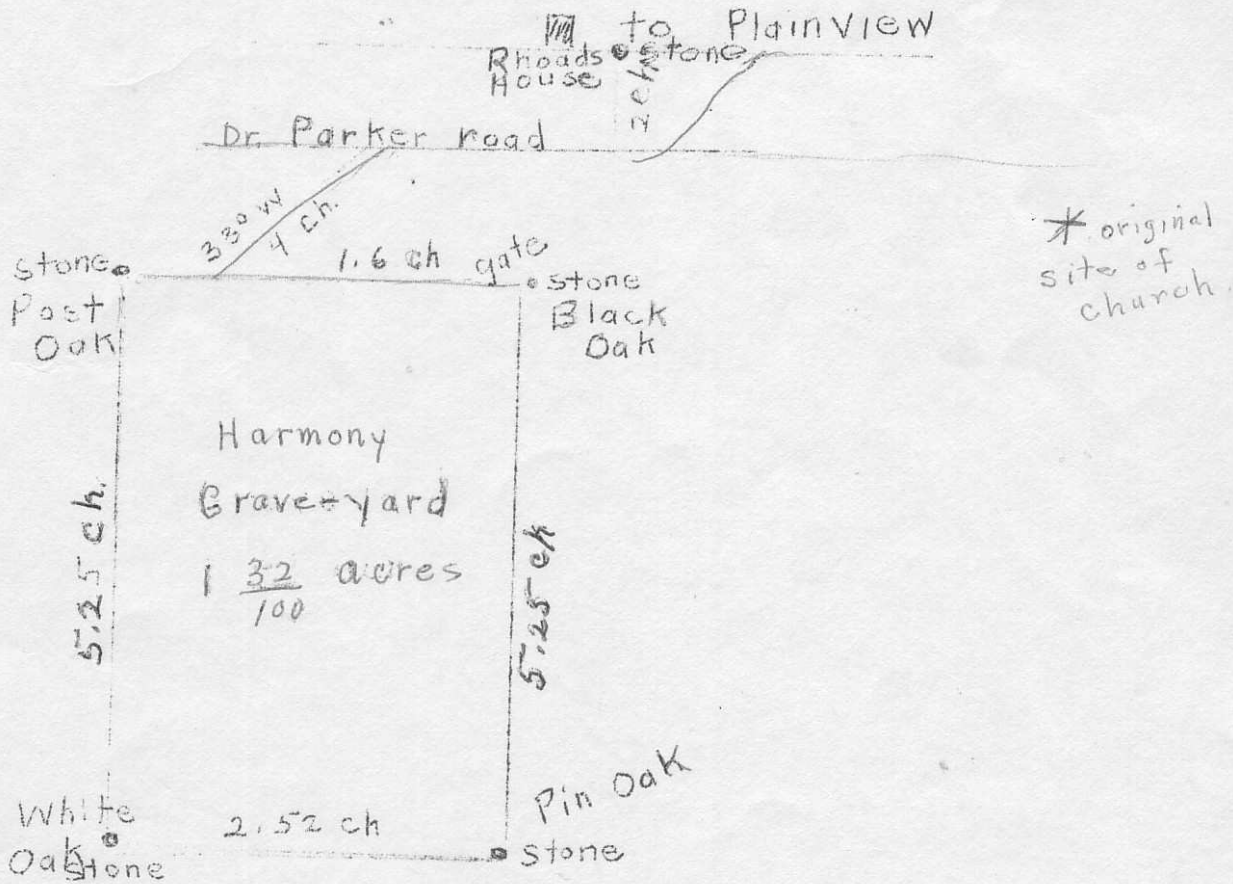 to Plainview
Rhoads
House
stone
2 ch
Dr. Parker road
33° W
4 ch.
1.6 ch
gate
* original
site of
church.
stone
Post
Oak
stone
Black
Oak
Harmony
Grave-yard
1 32/100 acres
5.25 ch.
5.25 ch
White
Oak
Stone
2.52 ch
Pin Oak
stone